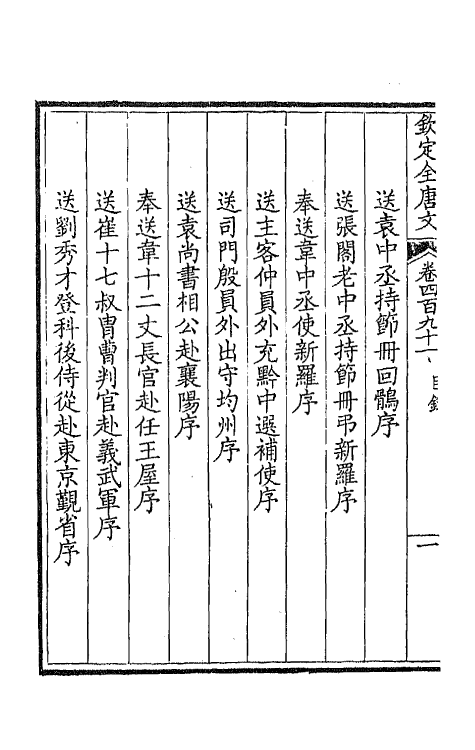 欽定全唐文
卷四百九十一
目錄
一
送袁中丞持節冊回鶻序
送張閣老中丞持節冊弔新羅序
奉送韋中丞使新羅序
送主客仲員外充黔中選補使序
送司門殷員外出守均州序
送袁尚書相公赴襄陽序
奉送韋十二丈長官赴任王屋序
送崔十七叔冑曹判官赴義武軍序
送劉秀才登科後侍從赴東京覲省序